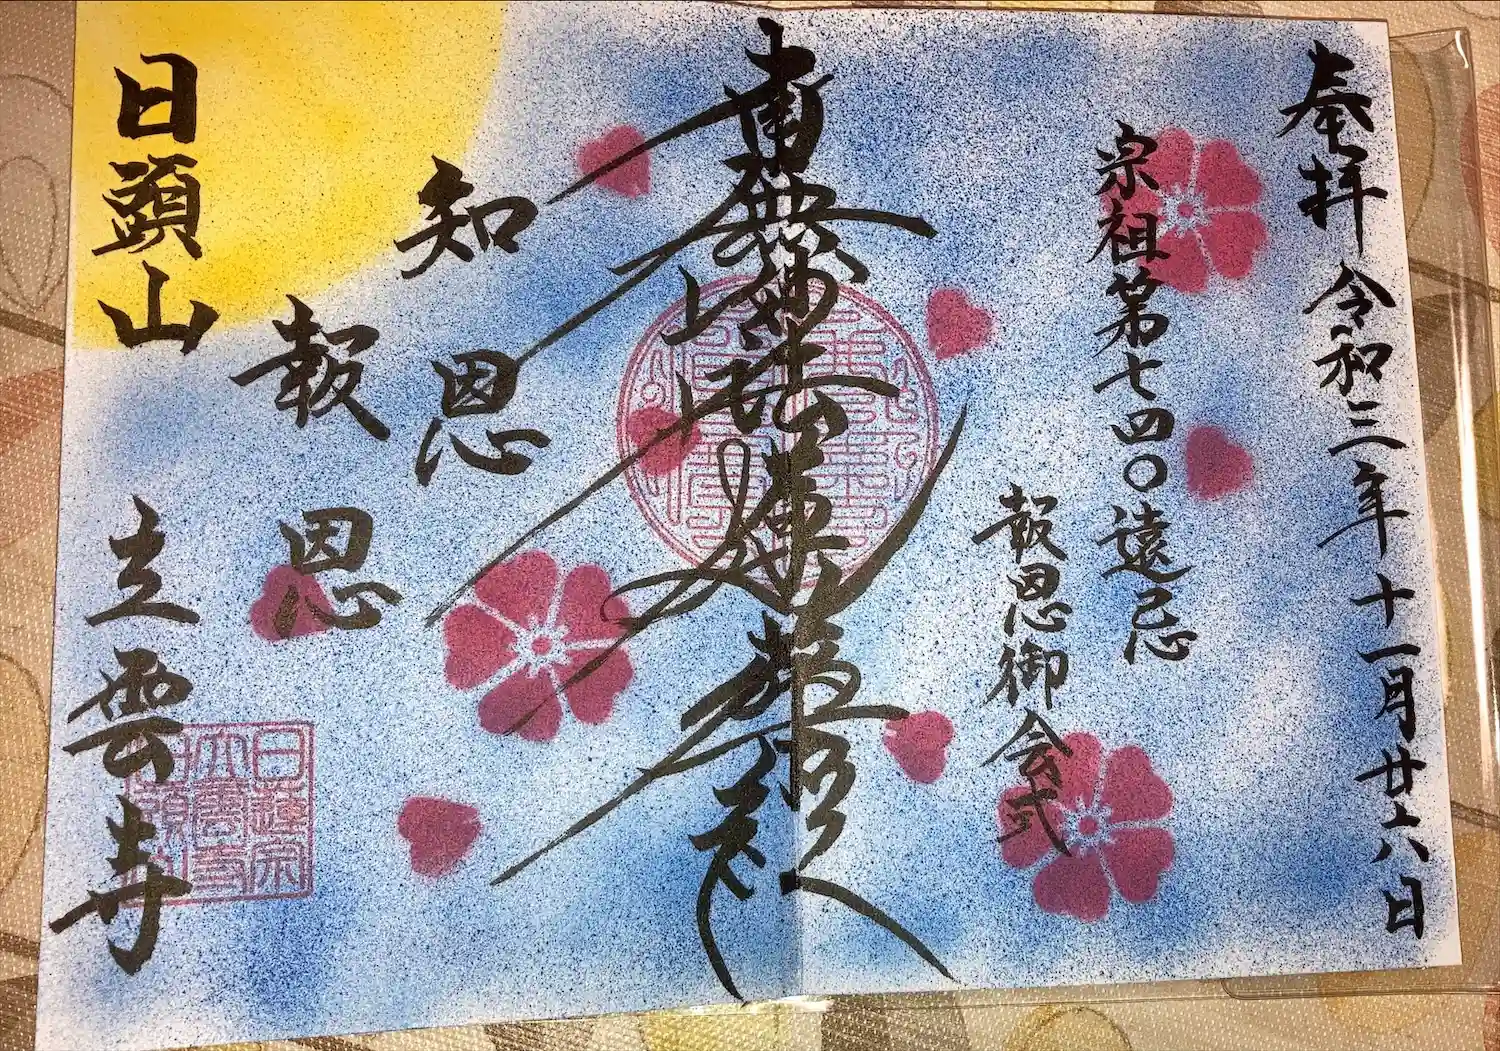 奉拝 令和三年十一月廿六日
宗祖第七四〇遠忌
報恩御会式
南無妙法蓮華経
知恩
報恩
日頭山 立雲寺